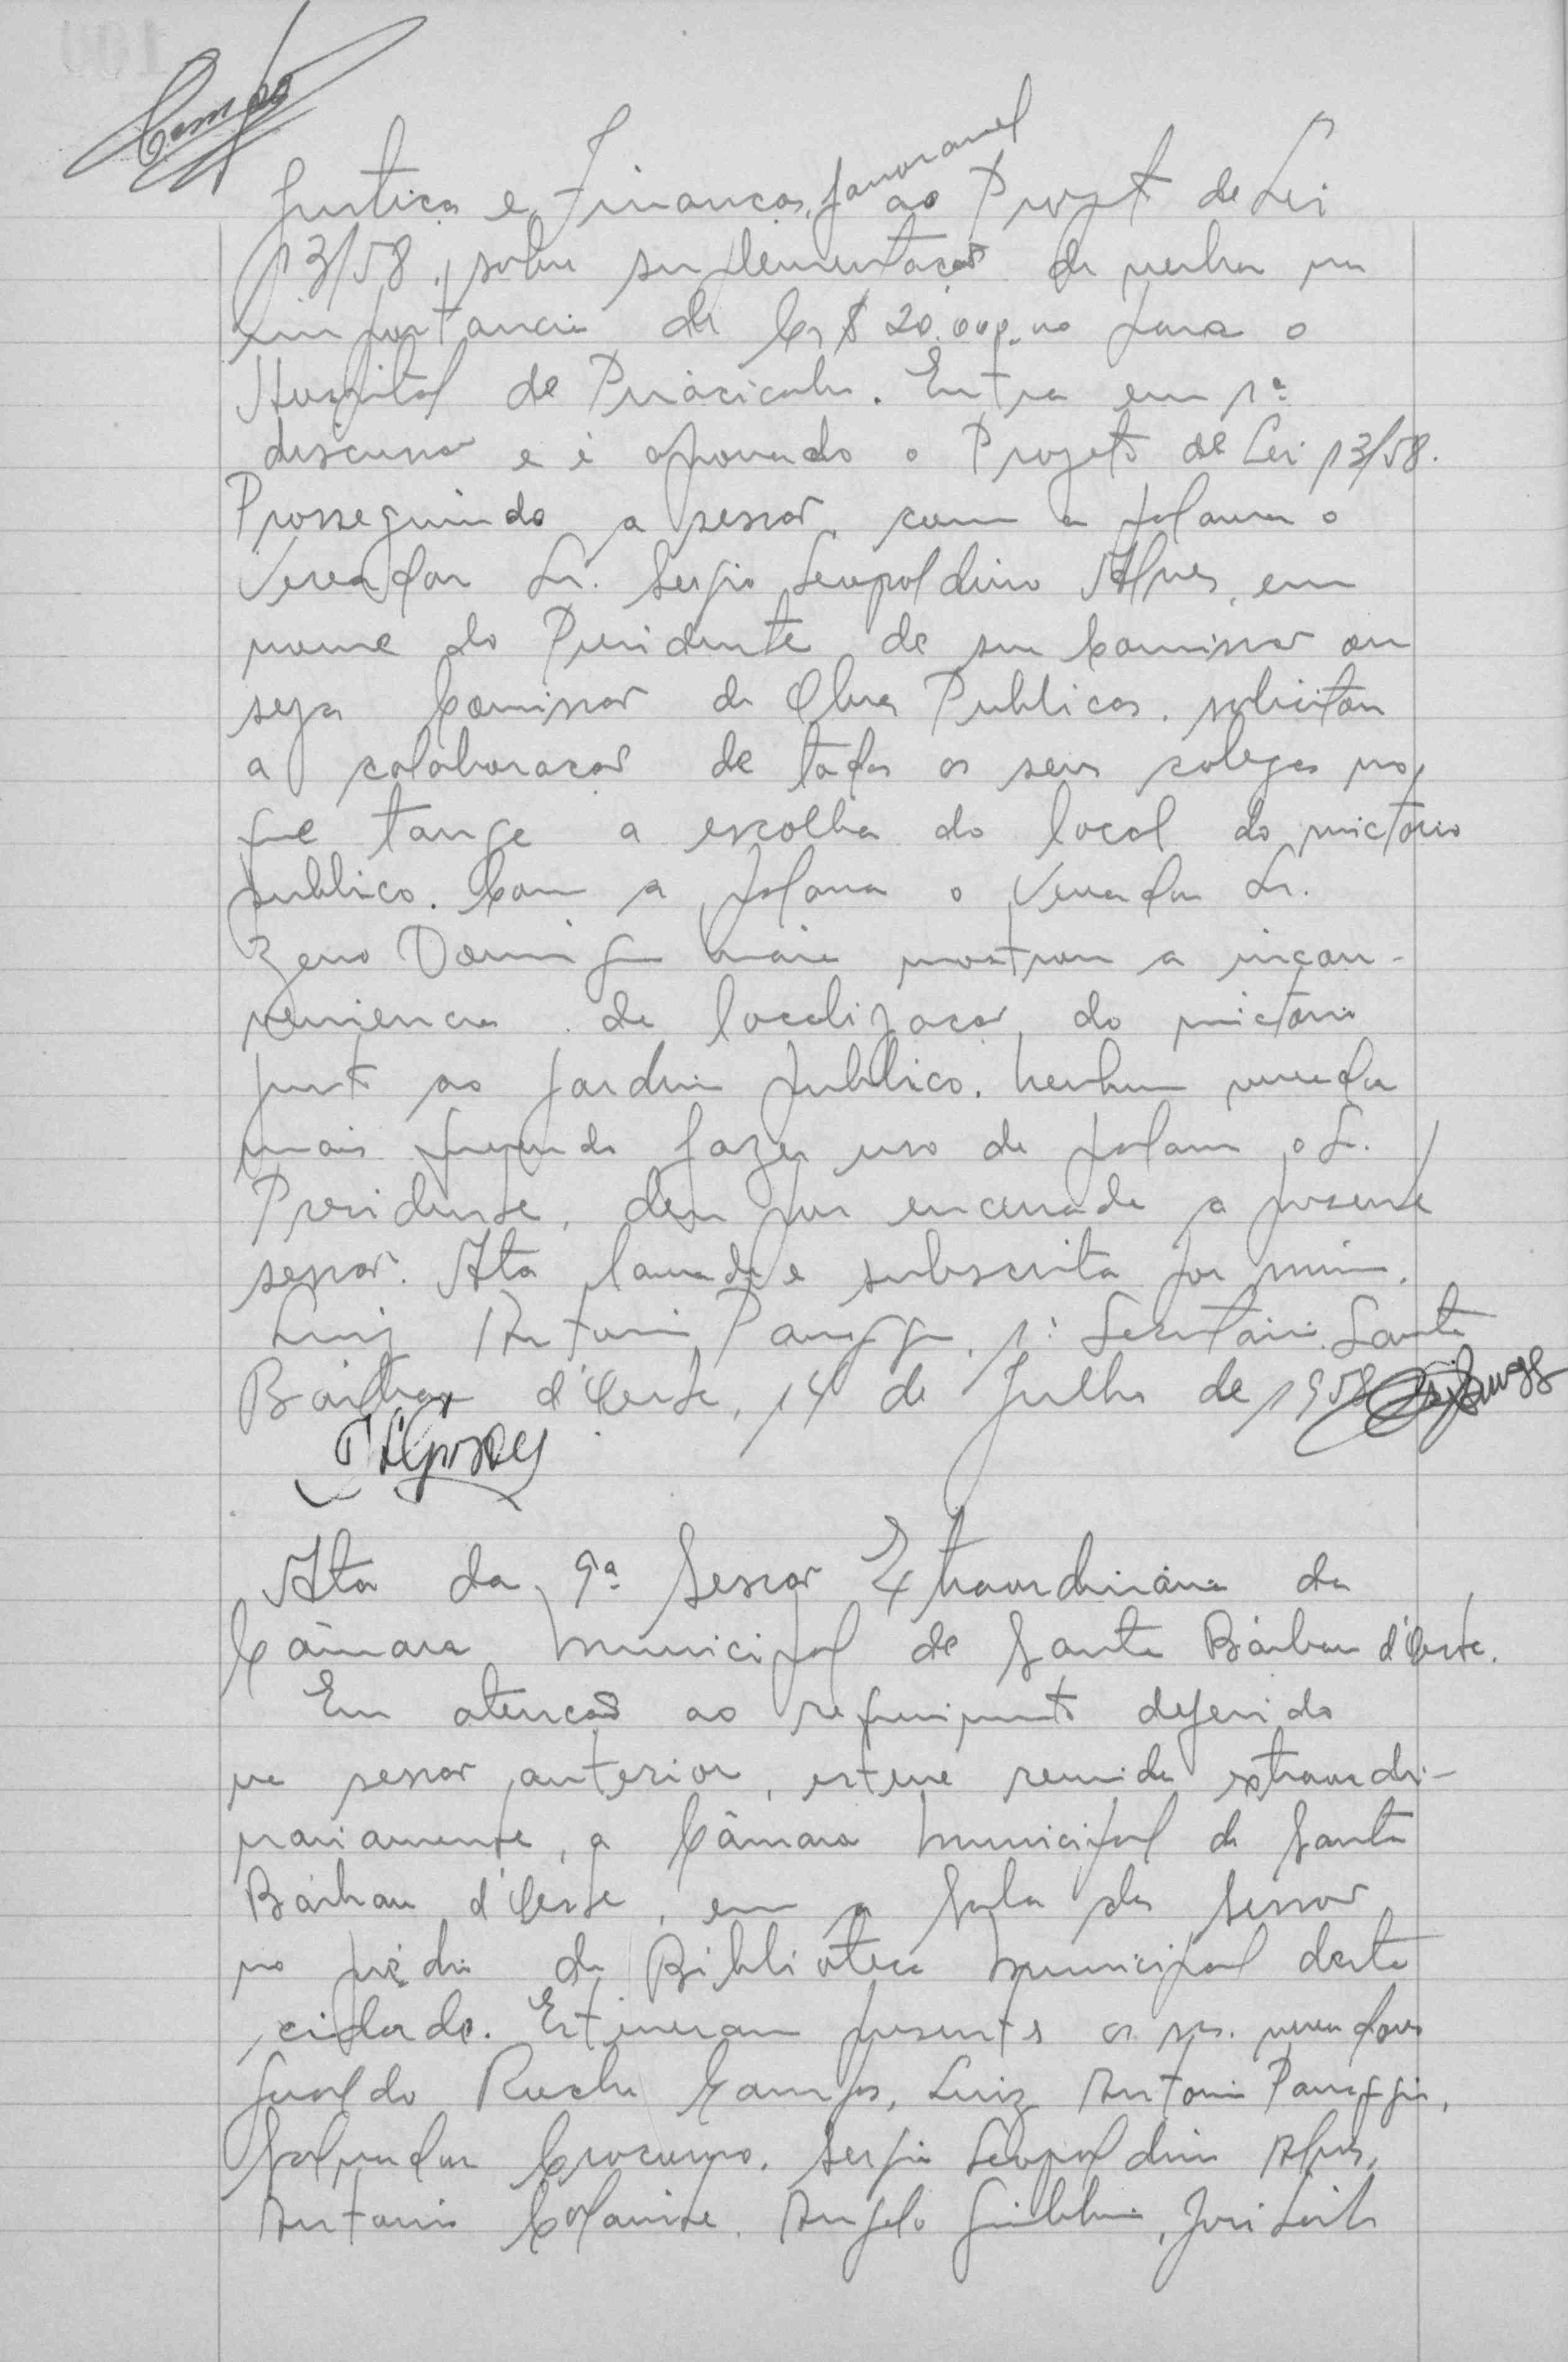 Campos
Justiça e Finanças, favoravel ao Projet de Lei
13/58, sobre suplementação de verba na
importancia de Cr$ 20.000,00 para o
Hospital de Piracicaba. Entra em 1ª
discussão e é aprovado o Projeto de Lei 13/58.
Prosseguindo a sessão, com a palavra o
Vereador Sr. Sergio Leopoldino Alves, em
nome do Presidente de sua Comissão ou
seja Comissão de Obras Publicas, solicitou
a colaboração de todos os seus colegas no
que tange a escolha do local do mictório
publico. Com a palavra o Vereador Sr.
Zeno Domingues Maia mostrou a incon-
veniencia da localização do mictorio
junto ao jardim publico. Nenhum vereador
mais querendo fazer uso da palavra, o Sr.
Presidente, deu por encerrada a presente
sessão. Ata lavrada e subscrita por mim,
Luiz Antonio Panaggio, 1º Secretario. Santa
Bárbara d'Oeste, 14 de Julho de 1958
Ata da 9ª Sessão Extraordinária da
Câmara Municipal de Santa Bárbara d'Oeste.
Em atenção ao requerimento deferido
na sessão anterior, esteve reunida extraordi-
nariamente, a Câmara Municipal de Santa
Bárbara d'Oeste, em a Sala das Sessões
no prédio da Biblioteca Municipal desta
cidade. Estiveram presentes os srs. vereadores
Geraldo Rocha Campos, Luiz Antonio Panaggio,
Salvador Crocomo, Sergio Leopoldino Alves,
Antonio Angelo Giubbina, José Leite